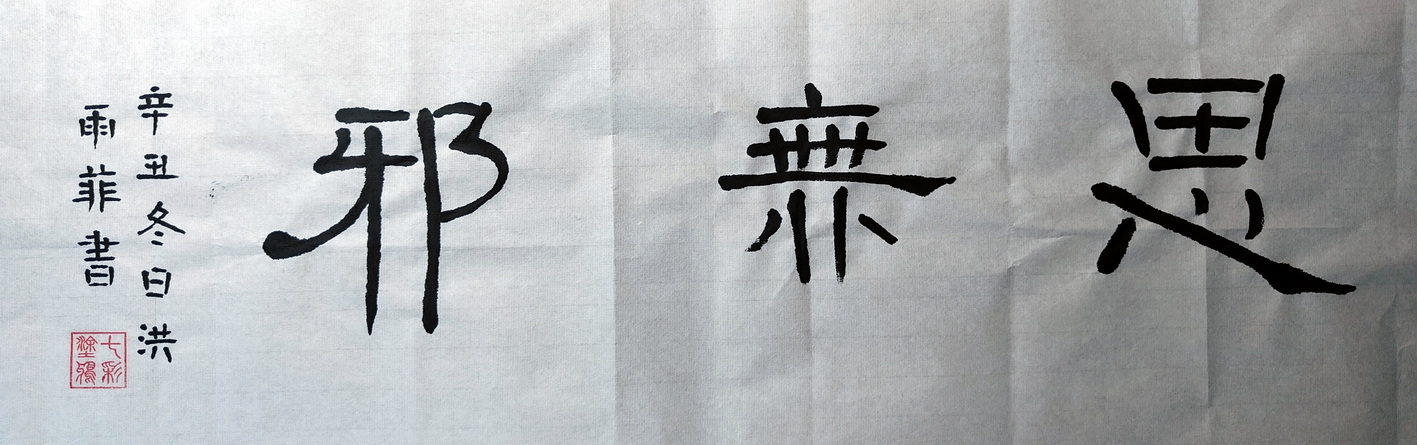 思無邪
辛丑冬日洪
雨菲書
七彩
塗鴉